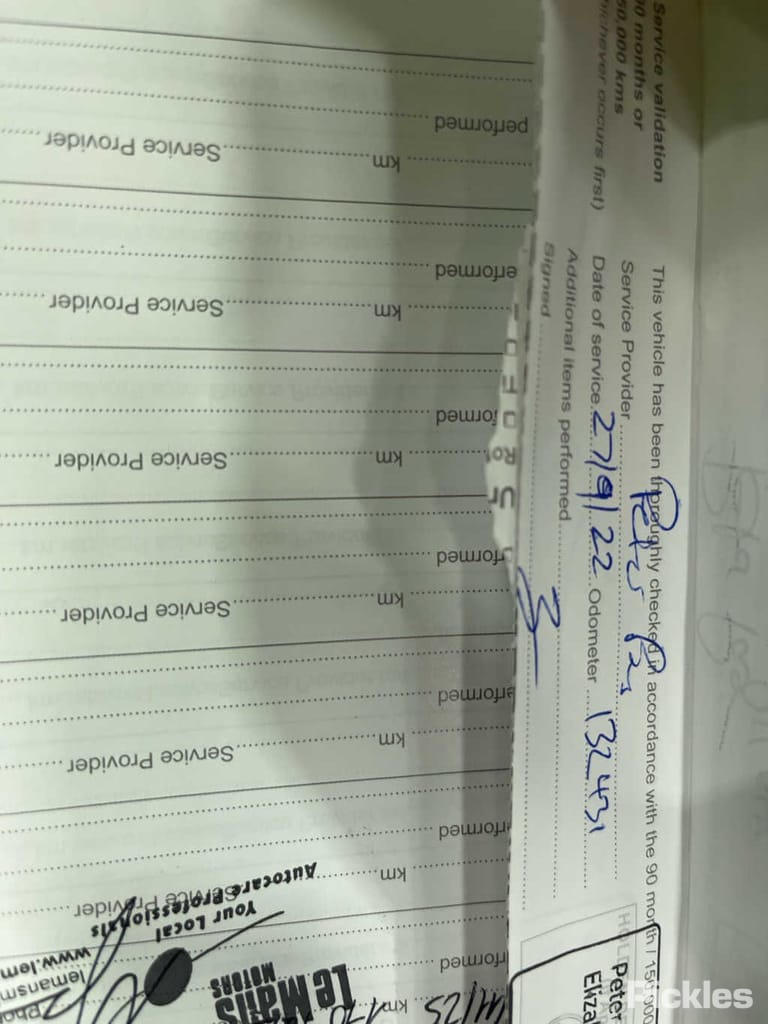 Service validation
90 months or
150,000 kms
(whichever occurs first)
This vehicle has been thoroughly checked in accordance with the 90 month / 150 000
Service Provider Peter
Date of service 27/9/22 Odometer 132431
Additional items performed
Signed
performed
km Service Provider
erformed
km Service Provider
formed
km Service Provider
formed
km Service Provider
erformed
km Service Provider
erformed
km Service Provider
erformed
km
Your Local
Autocare Professionals
Le Mans
MOTORS
www.lem
lemansm
Pho
Peter
Eliza
Pickles